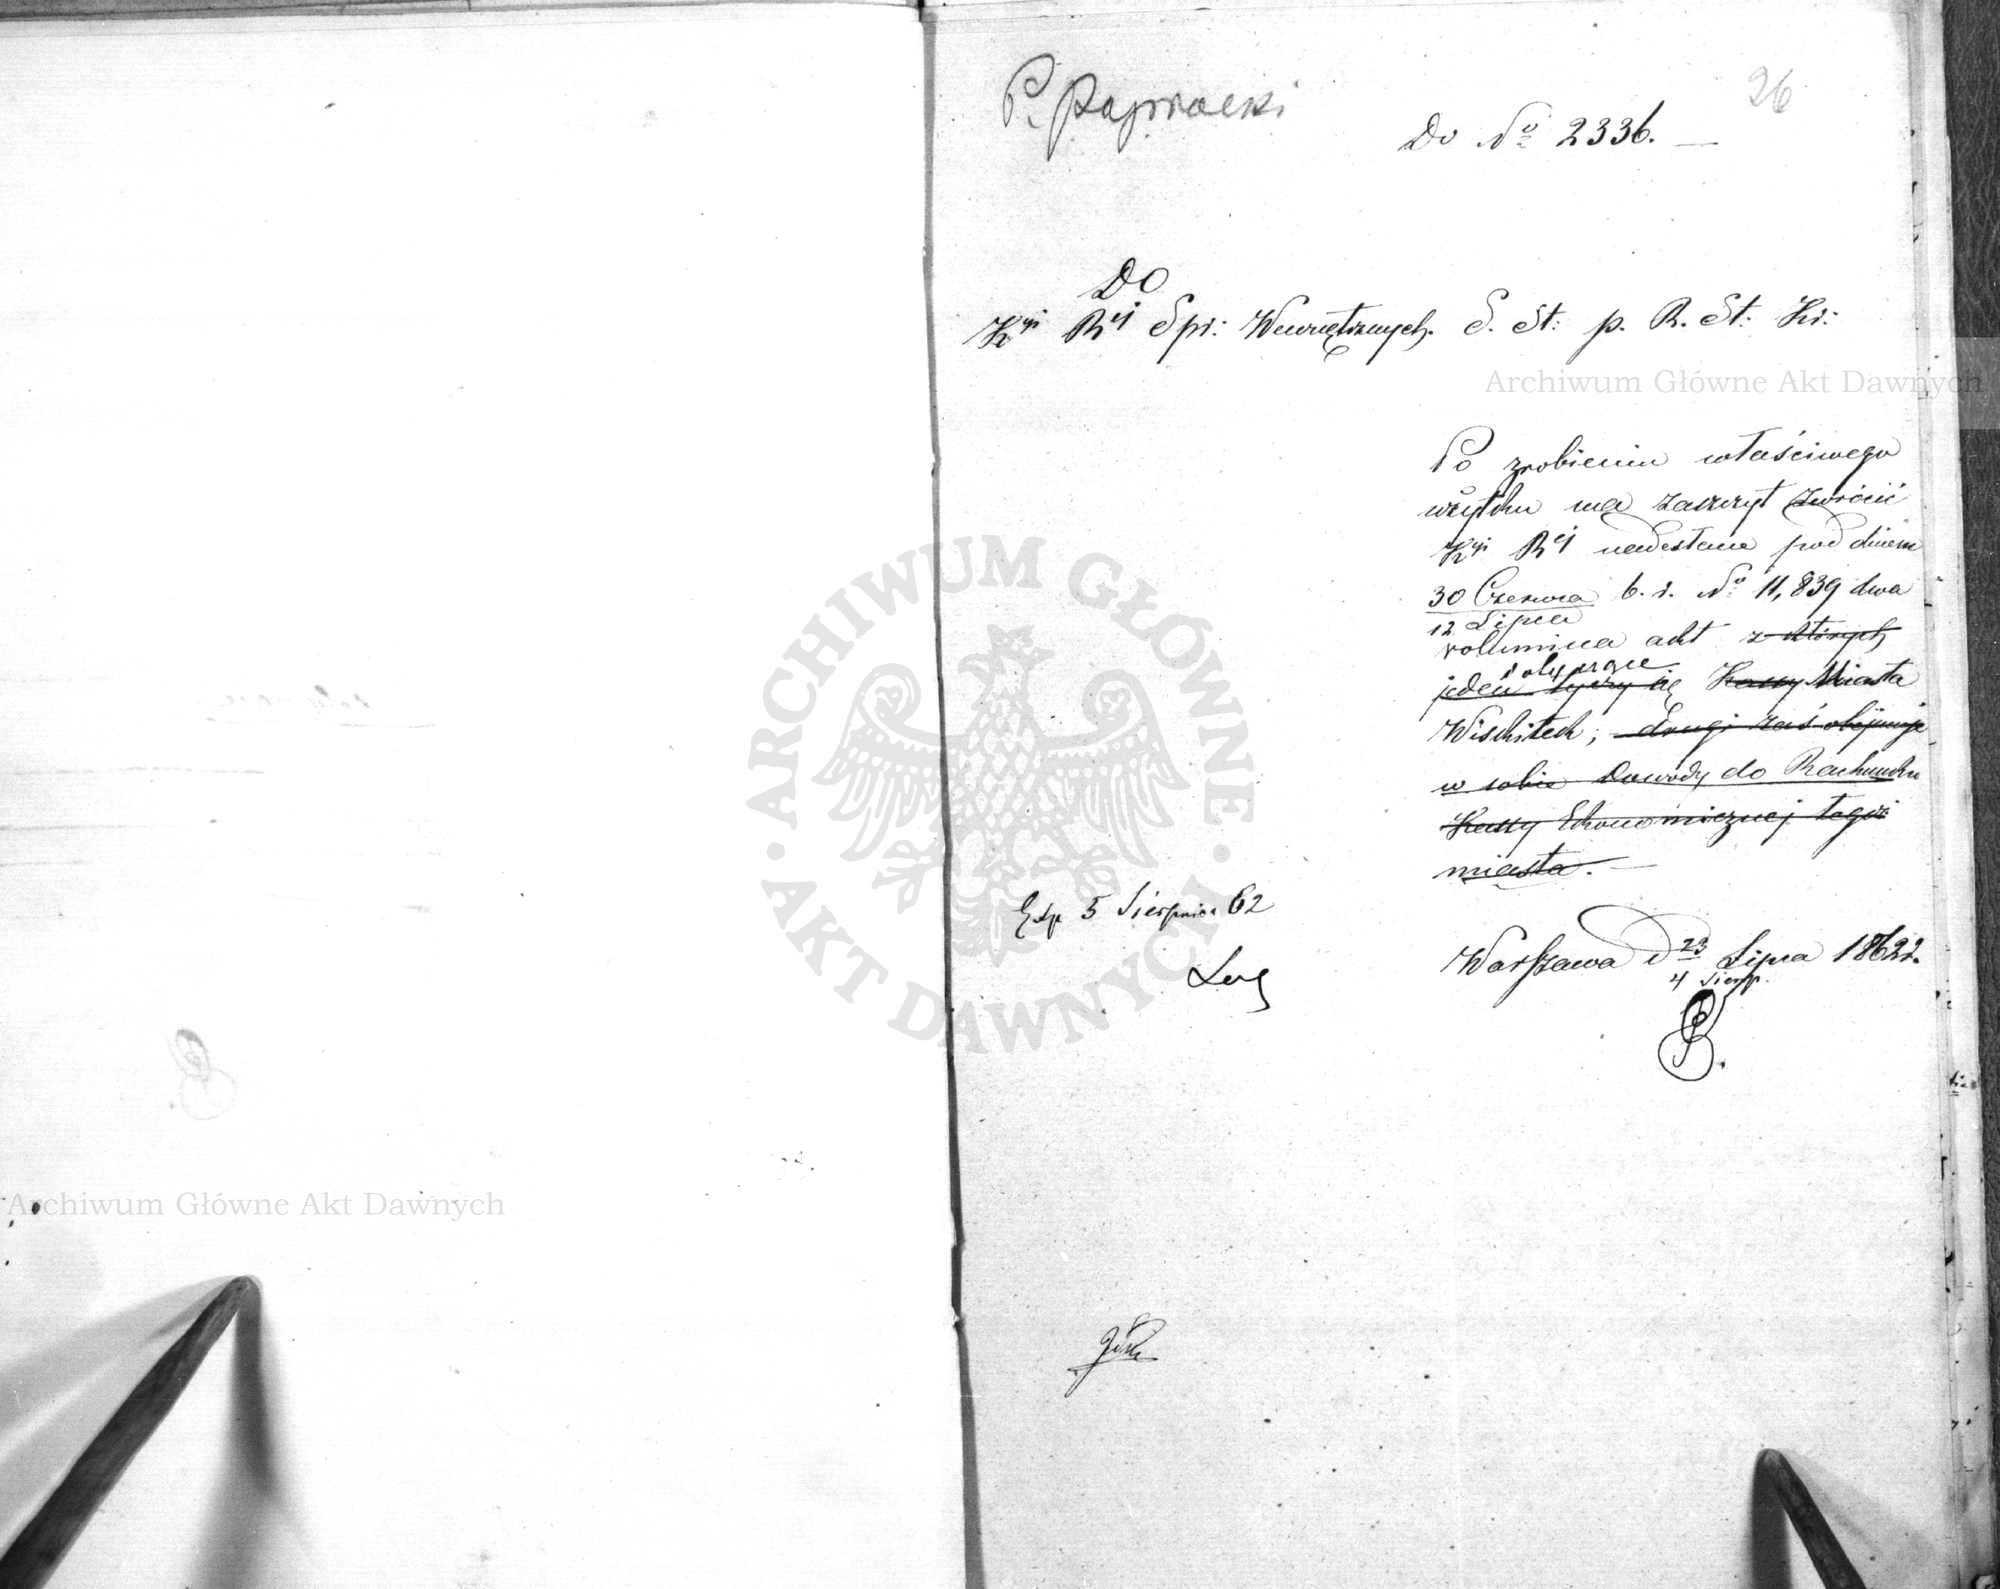 P. Paprocki
26
Do Nº 2336. —
DO
Kyi Rej Spr: Wewnętrznych. S. St: p. R. St: Kr:
Po zrobieniu właściwego
użytku ma zaszczyt zwrócić
Kyi Rej nadesłane pod dniem
30 Czerwca b. r. Nº 11,839 dwa
12 Lipca
volumina akt z których
jeden tyczy się Kassy Miasta
Wiskitek; drugi zaś obejmuje
w sobie Dowody do Rachunku
Kassy Ekonomicznej tegoż
miasta. —
Exp 5 Sierpnia 62
Warszawa d 23 Lipca 1862 r.
4 Sierp.
Archiwum Główne Akt Dawnych
ARCHIWUM GŁÓWNE
· AKT DAWNYCH ·
Archiwum Główne Akt Dawnych